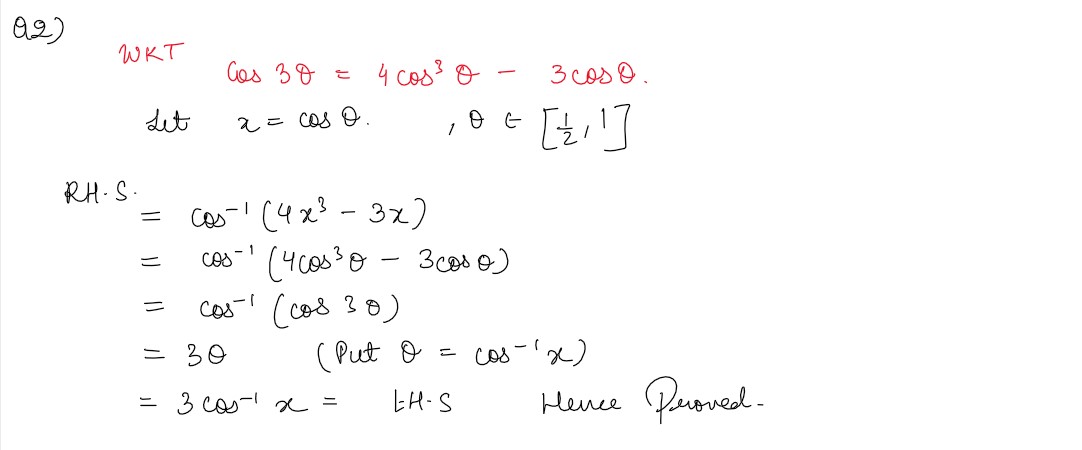 Q2)
WKT
Cos 3θ = 4cos³ θ - 3cosθ.
Let x = cos θ. , θ ∈ [1/2, 1]
RH.S.
= cos⁻¹ (4x³ - 3x)
= cos⁻¹ (4cos³θ - 3cosθ)
= cos⁻¹ (cos 3θ)
= 3θ (Put θ = cos⁻¹x)
= 3 cos⁻¹ x = LH.S Hence Proved.